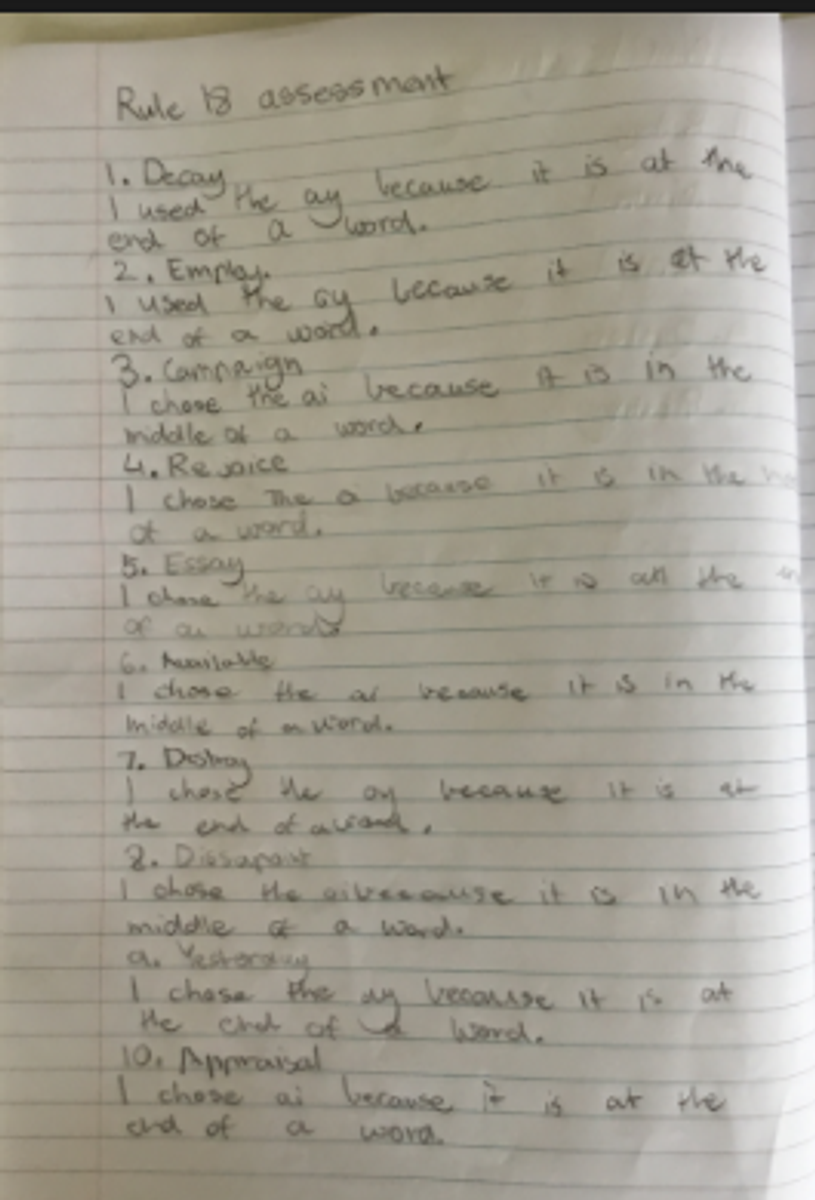 Rule 18 assessment
1. Decay
I used the ay because it is at the
end of a word.
2. Employ.
I used the oy because it is at the
end of a word.
3. Campaign
I chose the ai because it is in the
middle of a word.
4. Rejoice
I chose The oi because it is in the
of a word.
5. Essay
I chose the ay because it is at the
of a word
6. Available
I chose the ai because it is in the
middle of a word.
7. Destroy
I chose the oy because it is at
the end of a word.
8. Dissapoint
I chose the oi because it is in the
middle of a word.
9. Yesterday
I chose the ay because it is at
the end of a word.
10. Appraisal
I chose ai because it is at the
end of a word.